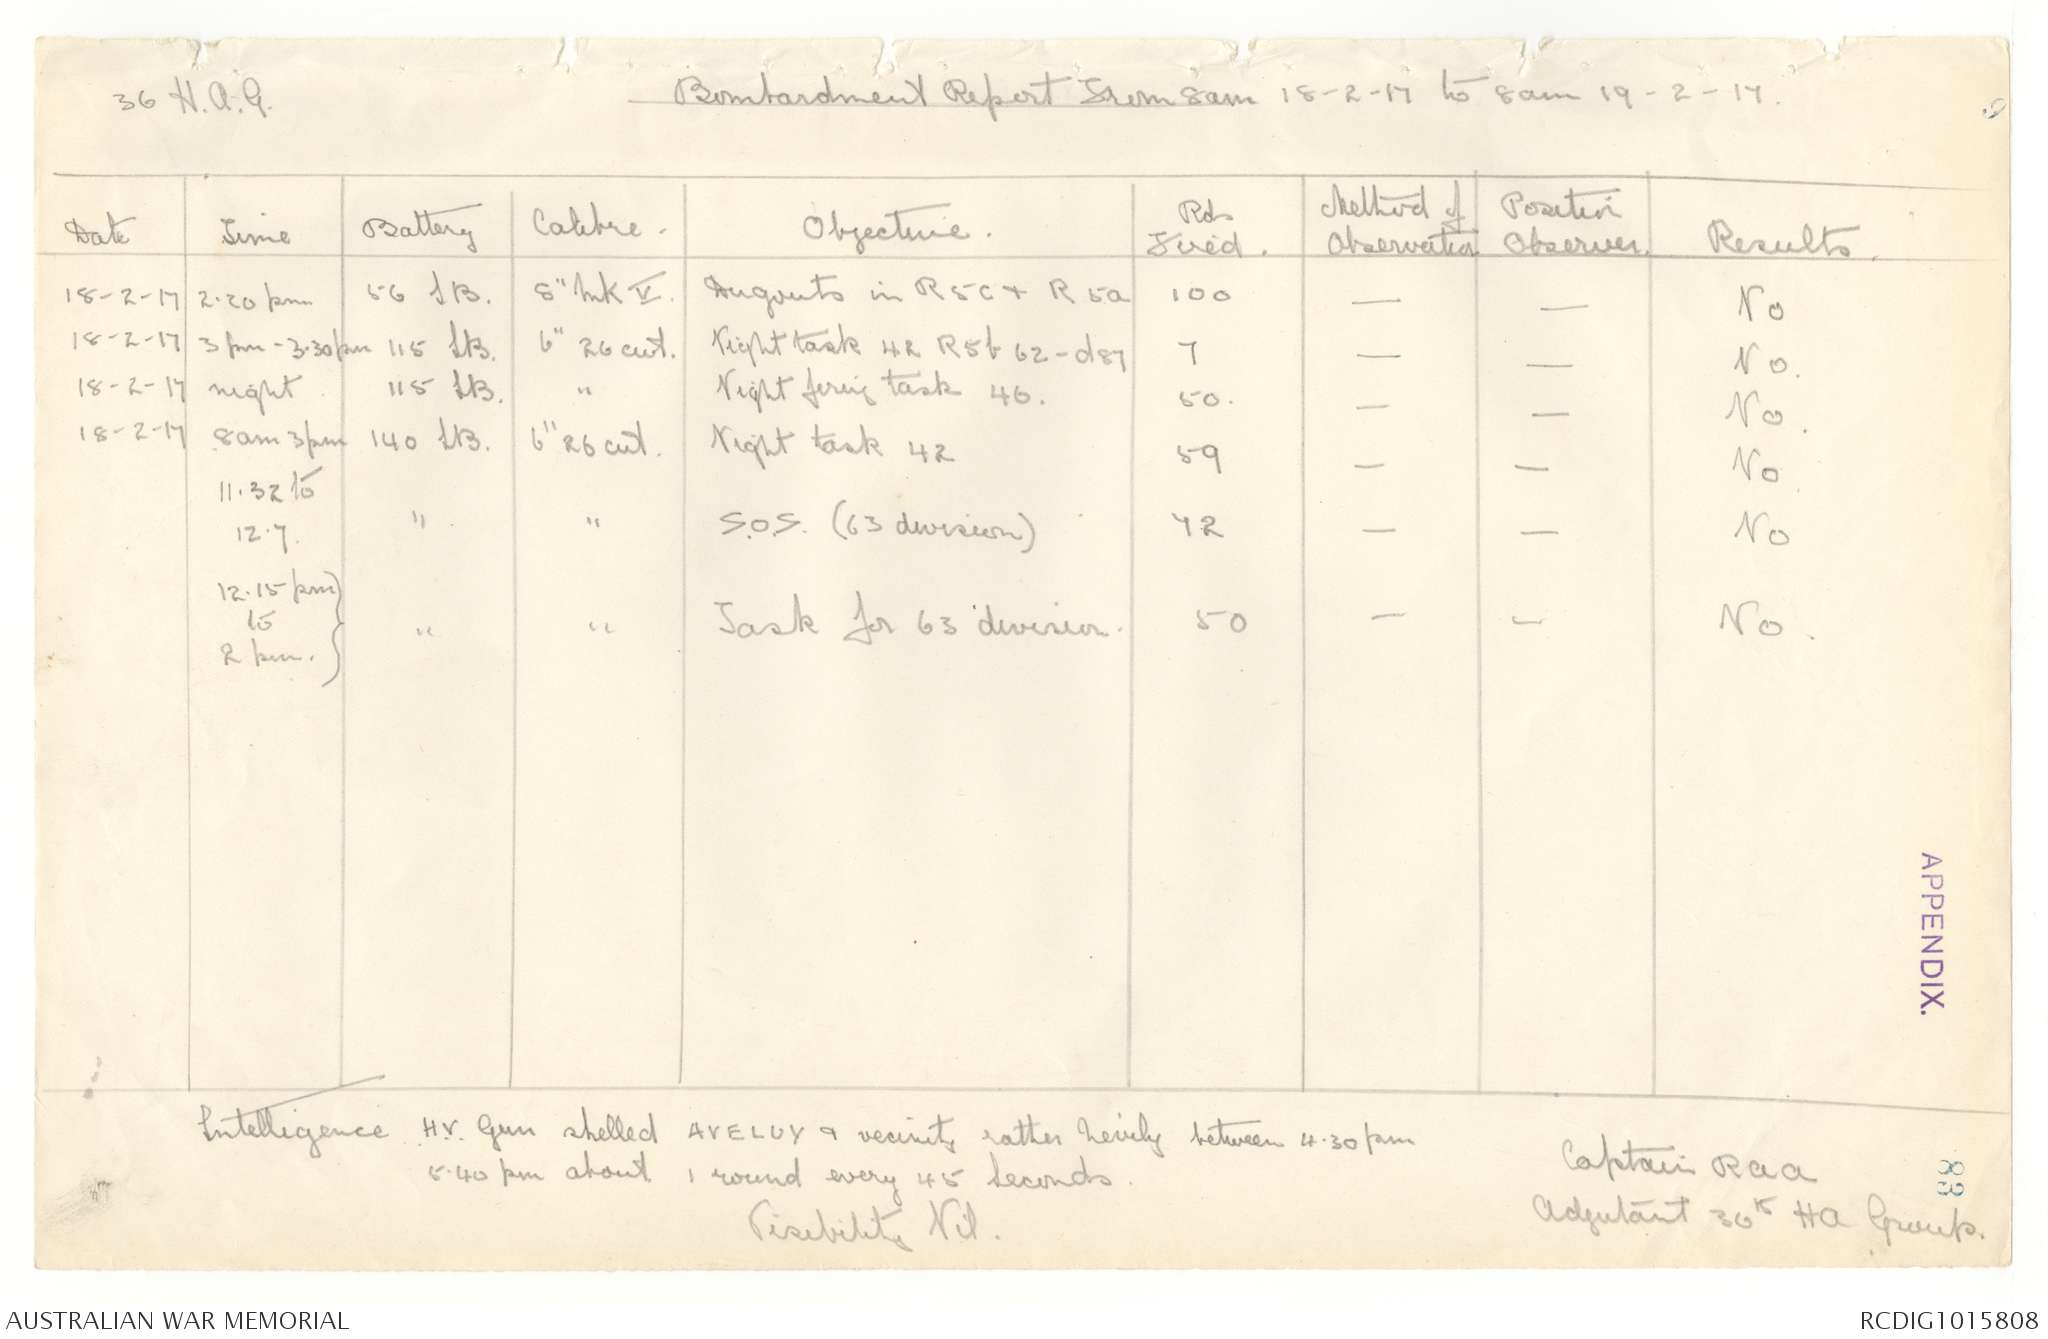 36 H.A.G. Bombardment Report From 8am 18-2-17 to 8am 19-2-17.
Date Time Battery Calibre. Objective. Rds Fired. Method of Observation Position Observer. Results.
18-2-17 2.20 pm 56 S.B. 8" Mk V. Dugouts in R5c + R5a 100 — — No
18-2-17 3pm-3.30pm 115 S.B. 6" 26 cwt. Night task 42 R5b 62-d87 7 — — No.
18-2-17 night 115 S.B. " Night firing task 46. 50. — — No.
18-2-17 8am 3pm 140 S.B. 6" 26 cwt. Night task 42 59 — — No.
11.32 to
12.7. " " S.O.S. (63 division) 72 — — No
12.15 pm
to " " Task for 63 division. 50 — — No.
2 pm.
Intelligence H.V. Gun shelled AVELUY & vecinity rather hevily between 4.30pm
5.40 pm about 1 round every 45 seconds.
Visebility Nil.
Captain RAA
Adjutant 36th HA Group.
APPENDIX.
88
AUSTRALIAN WAR MEMORIAL RCDIG1015808